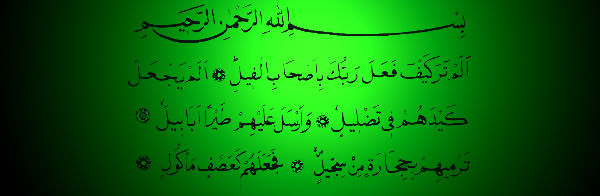 بِسْمِ اللهِ الرَّحْمٰنِ الرَّحِيمِ
اَلَمْ تَرَ كَيْفَ فَعَلَ رَبُّكَ بِاَصْحَابِ الْفِيلِ ۞ اَلَمْ يَجْعَلْ
كَيْدَهُمْ فِي تَضْلِيلٍ ۞ وَاَرْسَلَ عَلَيْهِمْ طَيْرًا اَبَابِيلَ ۞
تَرْمِيهِمْ بِحِجَارَةٍ مِنْ سِجِّيلٍ ۞ فَجَعَلَهُمْ كَعَصْفٍ مَأْكُولٍ ۞